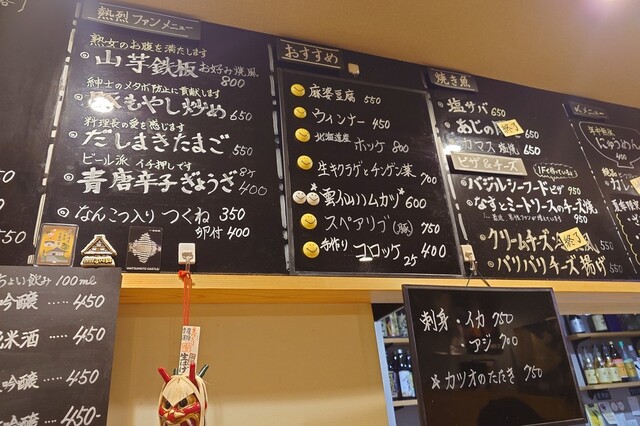 熱烈ファンメニュー
熟女のお腹を満たします
山芋鉄板お好み焼風 800
紳士のメタボ防止に貢献します
もやし炒め 650
料理長の愛を感じます
だしまきたまご 550
ビール派 イチ押しです
青唐辛子ぎょうざ 8ヶ 400
なんこつ入りつくね 350
卵付 400
おすすめ
麻婆豆腐 550
ウィンナー 450
北海道産 ホッケ 800
生キクラゲとチンゲン菜 700
雲仙ハムカツ 600
スペアリブ(豚) 750
手作り コロッケ 2ケ 400
焼き魚
塩サバ 650
あじの 650
カマス 塩焼 650
ピザ&チーズ
バジルシーフードピザ 950
なすとミートソースのチーズ焼 950
クリームチーズ 終了 550
バリバリチーズ揚げ 550
メニュー
にゅうめん
カレー
ちょい飲み 100ml
吟醸 450
純米酒 450
吟醸 450
吟醸 450
刺身・イカ 750
アジ 700
☆カツオのたたき 750